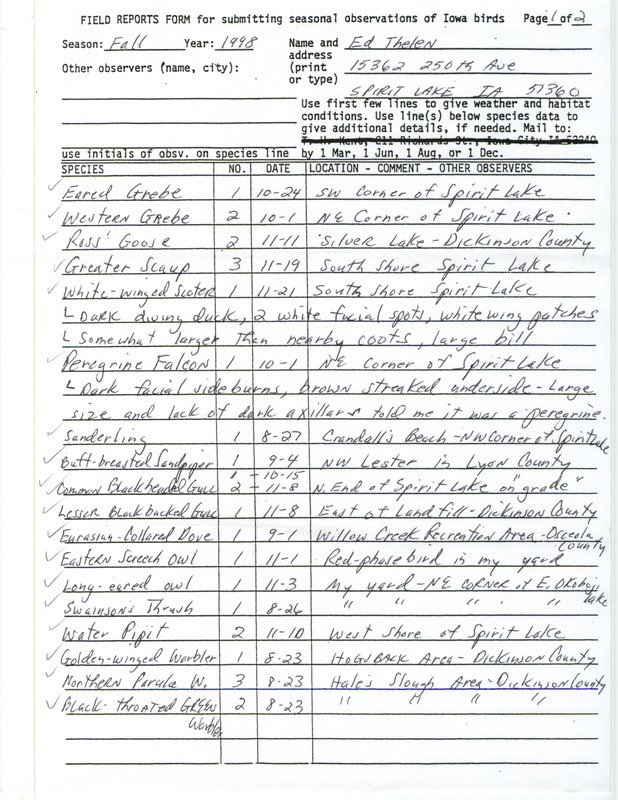 FIELD REPORTS FORM for submitting seasonal observations of Iowa birds Page 1 of 2
Season: Fall Year: 1998 Name and Ed Thelen
address
Other observers (name, city): (print 15362 250th Ave
or type)
SPIRIT LAKE IA 51360
Use first few lines to give weather and habitat
conditions. Use line(s) below species data to
give additional details, if needed. Mail to:
T. H. Kent, 211 Richards St., Iowa City IA 52240
use initials of obsv. on species line by 1 Mar, 1 Jun, 1 Aug, or 1 Dec.
SPECIES NO. DATE LOCATION - COMMENT - OTHER OBSERVERS
✓ Eared Grebe 1 10-24 SW Corner of Spirit Lake
✓ Western Grebe 2 10-1 NE Corner of Spirit Lake
✓ Ross' Goose 2 11-11 Silver Lake - Dickinson County
✓ Greater Scaup 3 11-19 South Shore Spirit Lake
✓ White-winged Scoter 1 11-21 South Shore Spirit Lake
└ Dark diving duck, 2 white facial spots, white wing patches
└ Somewhat larger than nearby coots, large bill
✓ Peregrine Falcon 1 10-1 NE Corner of Spirit Lake
└ Dark facial sideburns, brown streaked underside - Large
size and lack of dark axillars told me it was a peregrine.
✓ Sanderling 1 8-27 Crandall's Beach - NW Corner of Spirit Lake
✓ Buff-breasted Sandpiper 1 9-4 NW Lester in Lyon County
1 - 10-15
✓ Common Blackheaded Gull 2 - 11-8 N. End of Spirit Lake on "grade"
✓ Lesser Blackbacked Gull 1 11-8 East of Landfill - Dickinson County
✓ Eurasian-Collared Dove 1 9-1 Willow Creek Recreation Area - Osceola
County
✓ Eastern Screech Owl 1 11-1 Red-phase bird in my yard
✓ Long-eared owl 1 11-3 My yard - NE CORNER of E. Okoboji
Lake
✓ Swainson's Thrush 1 8-26 " " " " "
✓ Water Pipit 2 11-10 West Shore of Spirit Lake
✓ Golden-winged Warbler 1 8-23 HOGSBACK Area - Dickinson County
✓ Northern Parula W. 3 8-23 Hale's Slough Area - Dickinson County
✓ Black-throated GREEN 2 8-23 " " " "
Warbler